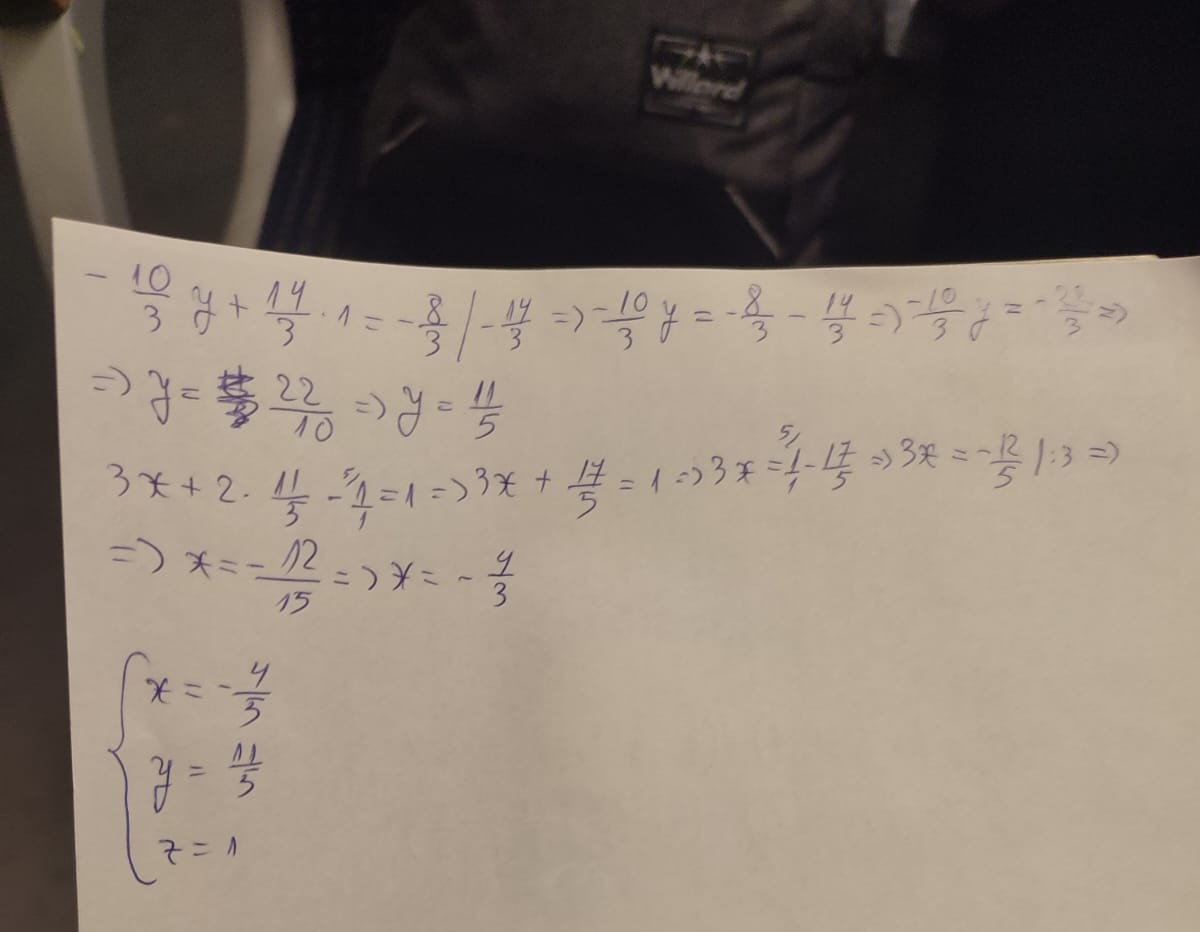 Willard
- 10/3 y + 14/3 · 1 = - 8/3 / - 14/3 => - 10/3 y = - 8/3 - 14/3 => - 10/3 y = - 22/3 =>
=> y = 22/10 => y = 11/5
3x + 2 · 11/5 - 5/ 1/1 = 1 => 3x + 17/5 = 1 => 3x = 5/ 1/1 - 17/5 => 3x = - 12/5 / :3 =>
=> x = - 12/15 => x = - 4/3
x = - 4/5
y = 11/5
z = 1